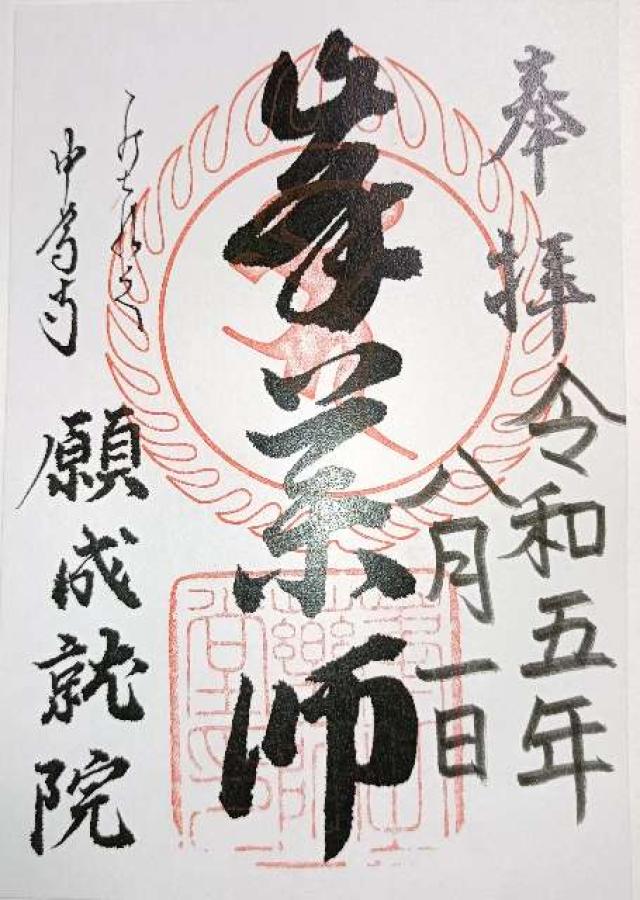 奉拝
令和五年
八月一日
峯薬師
中尊寺
願成就院